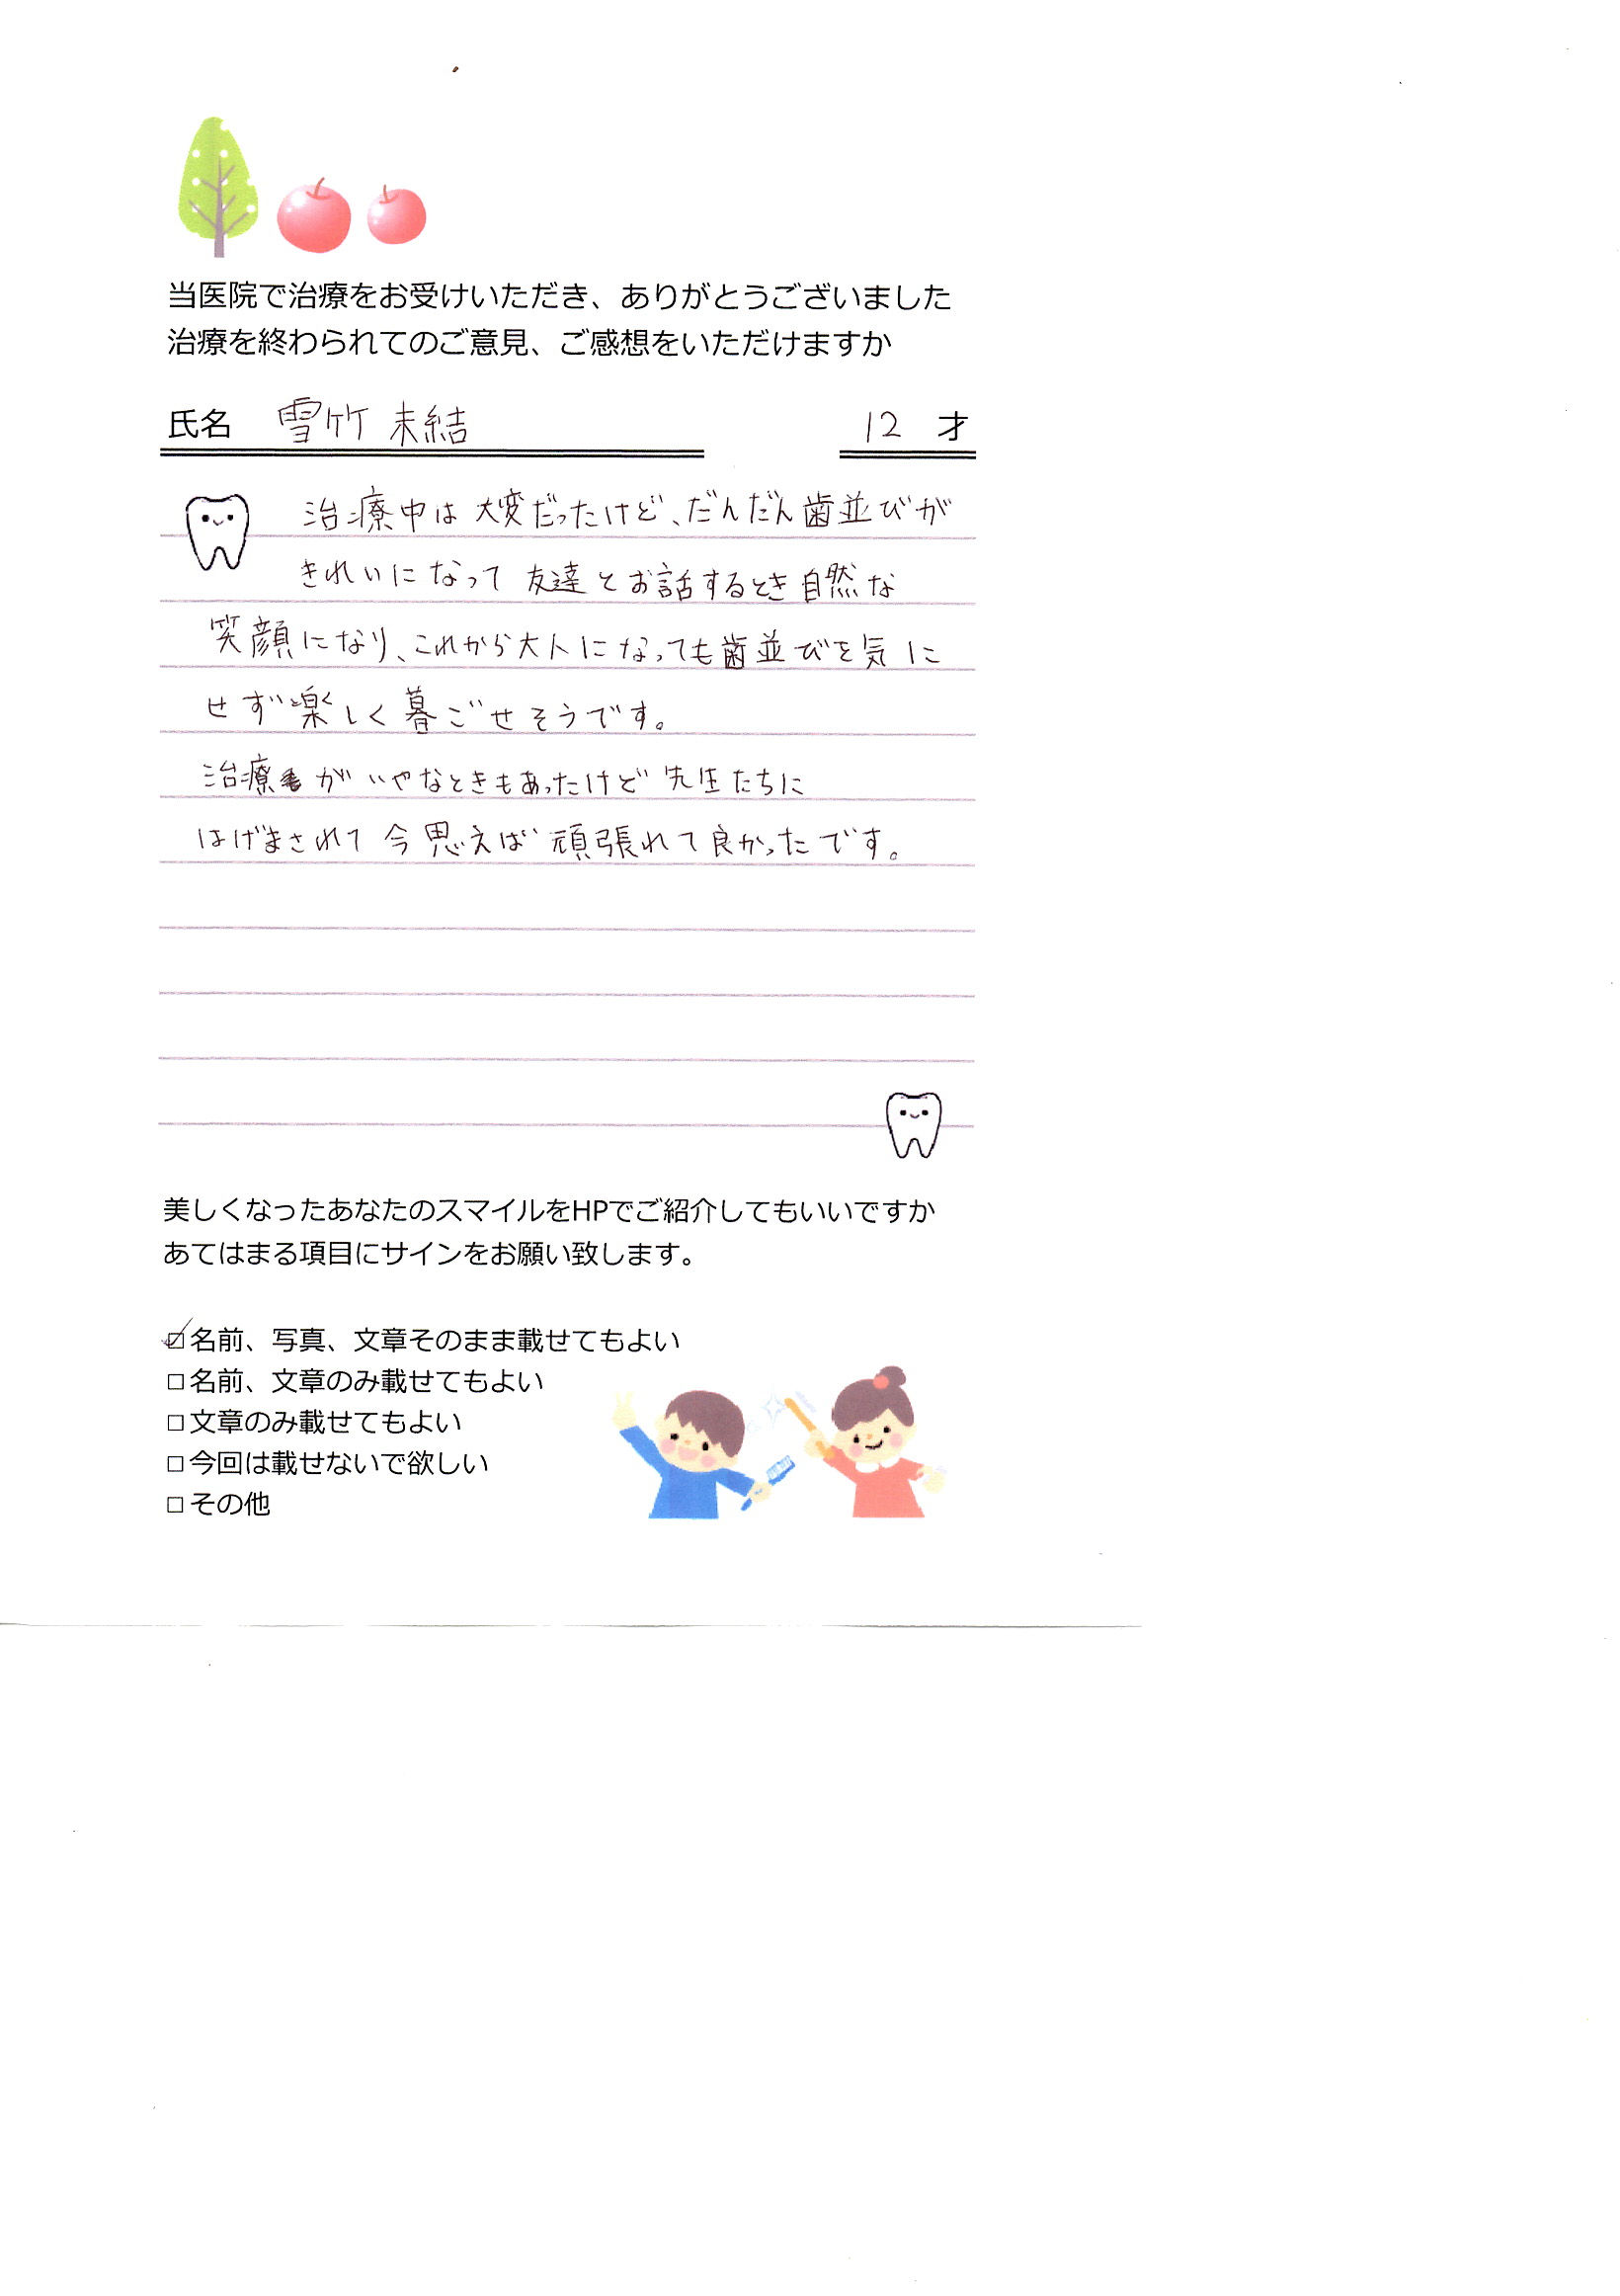 当医院で治療をお受けいただき、ありがとうございました
治療を終わられてのご意見、ご感想をいただけますか
氏名 雪竹 未結 12 才
治療中は大変だったけど、だんだん歯並びが
きれいになって 友達とお話するとき自然な
笑顔になり、これから大人になっても歯並びを気に
せず楽しく暮ごせそうです。
治療がいやなときもあったけど 先生たちに
はげまされて 今思えば 頑張れて良かったです。
美しくなったあなたのスマイルをHPでご紹介してもいいですか
あてはまる項目にサインをお願い致します。
☑名前、写真、文章そのまま載せてもよい
□名前、文章のみ載せてもよい
□文章のみ載せてもよい
□今回は載せないで欲しい
□その他